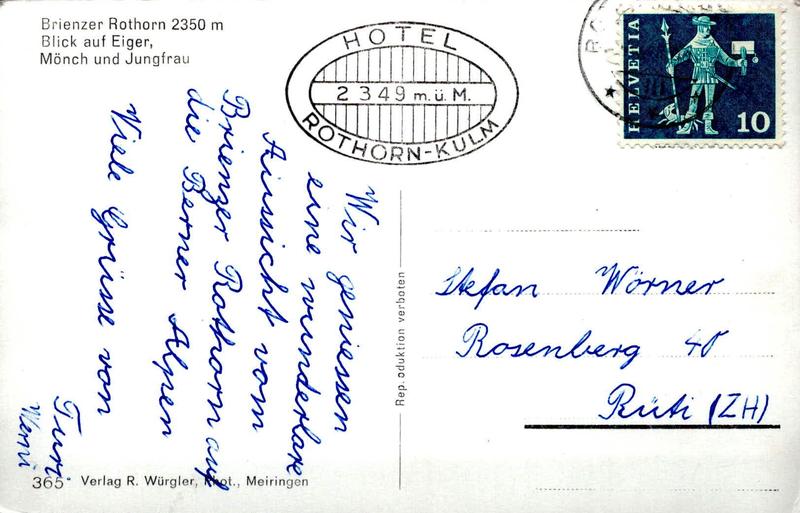 Brienzer Rothorn 2350 m
Blick auf Eiger,
Mönch und Jungfrau
HOTEL
2349 m.ü.M.
ROTHORN-KULM
HELVETIA
10
Wir geniessen
eine wunderbare
Aussicht vom
Brienzer Rothorn auf
die Berner Alpen
Viele Grüsse von
Werni
Rep.oduktion verboten
Stefan Wörner
Rosenberg 40
Rüti (ZH)
365 Verlag R. Würgler, Phot., Meiringen